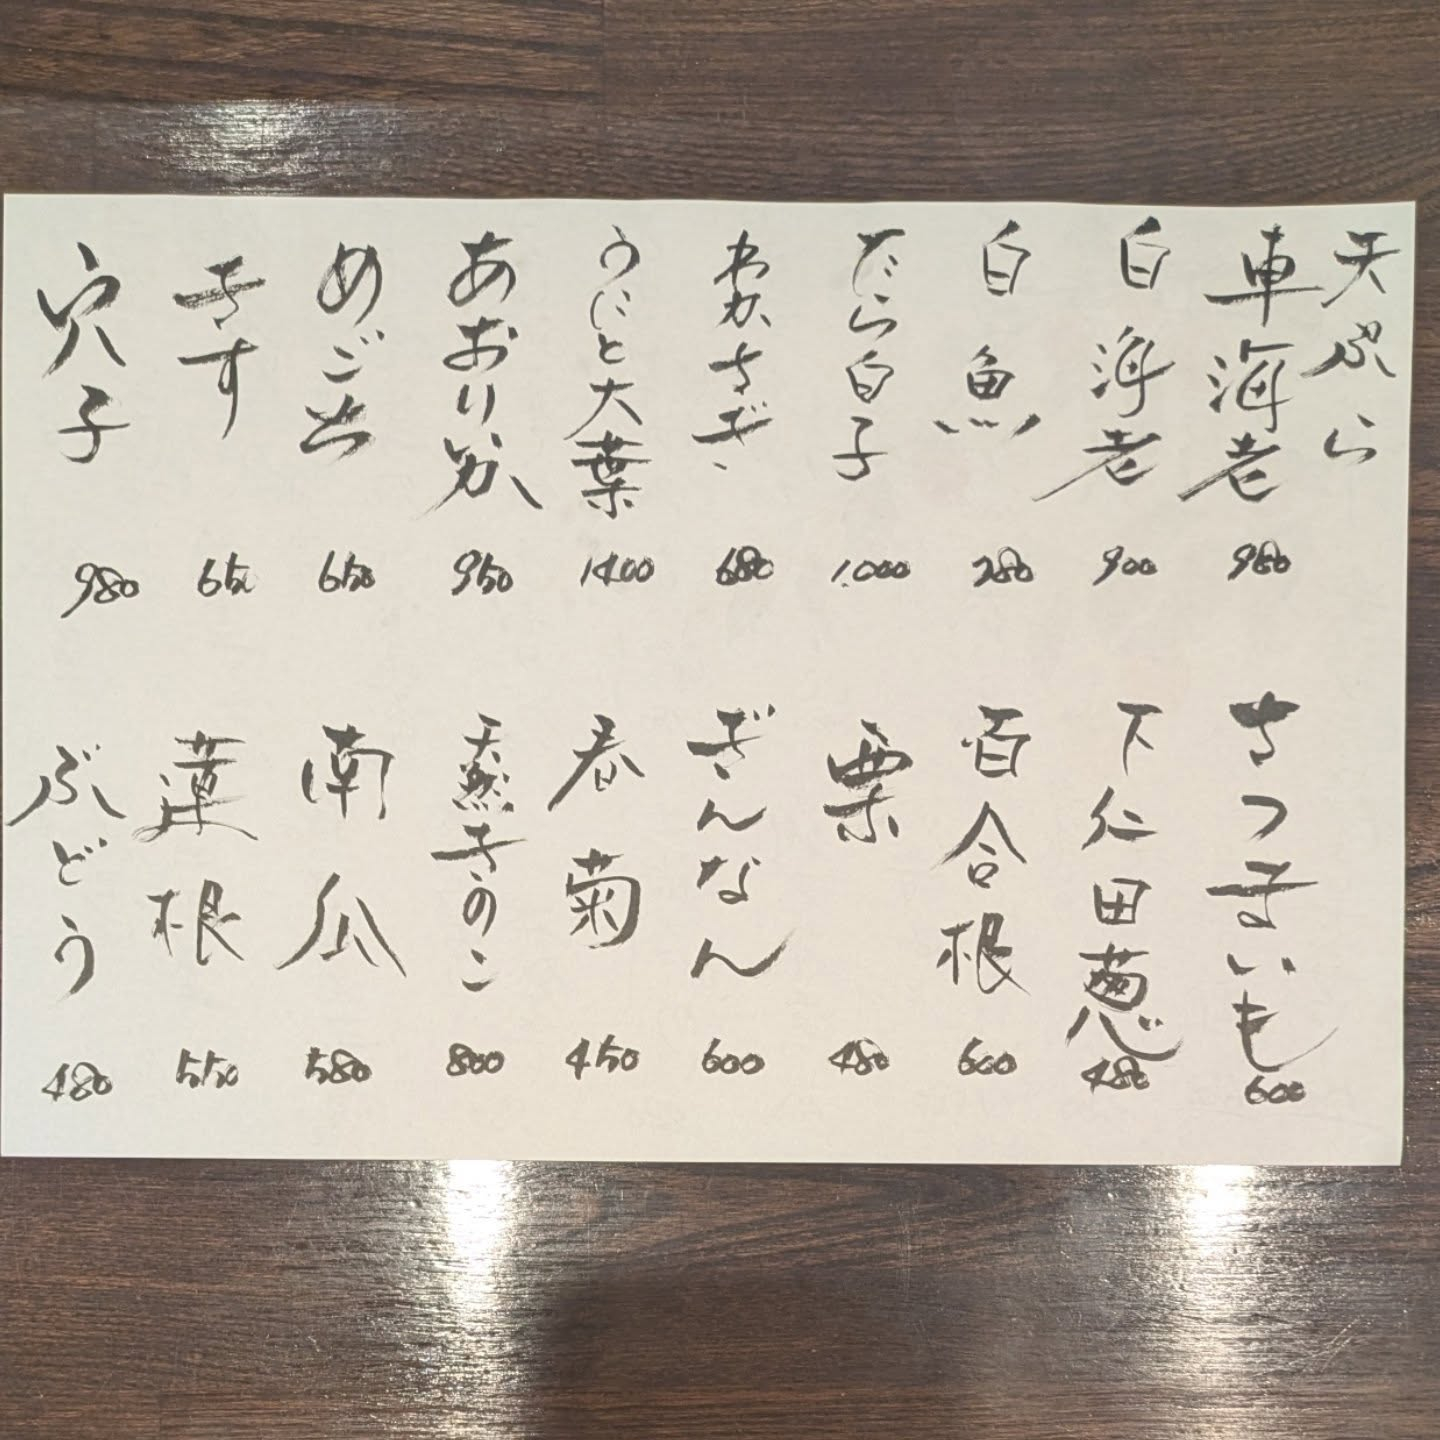 天ぷら
車海老 980
白海老 900
白魚 780
だら白子 1.000
わかさぎ 680
うにと大葉 1400
あおりいか 950
めごち 650
きす 650
穴子 980
さつまいも 600
下仁田葱 480
百合根 600
栗 480
ぎんなん 600
春菊 450
天然きのこ 800
南瓜 580
蓮根 550
ぶどう 480